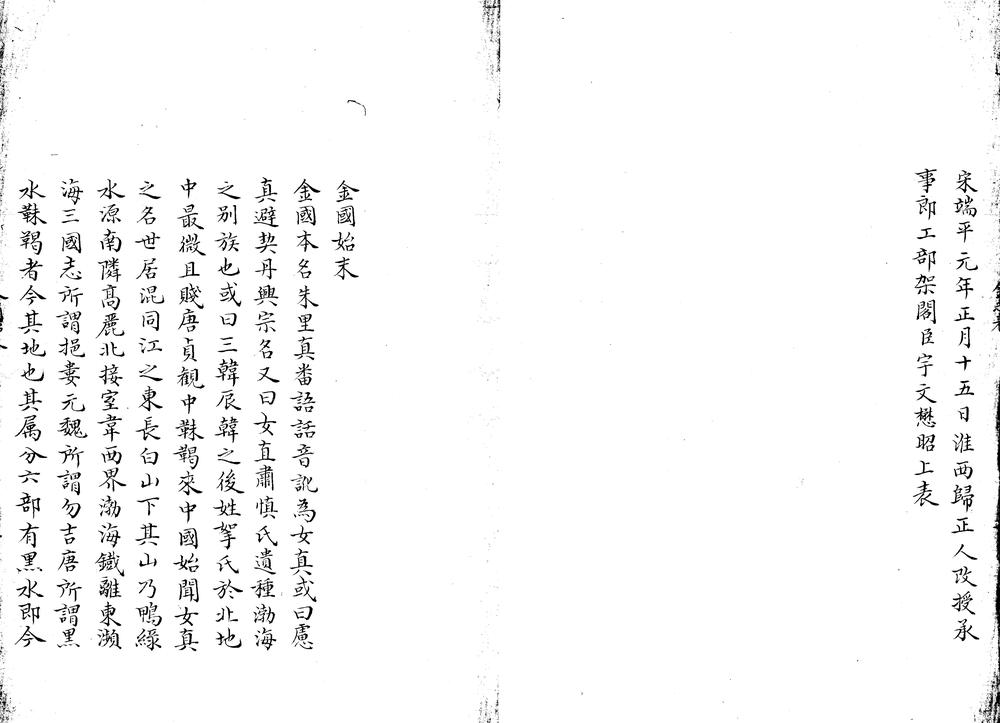 宋端平元年正月十五日淮西歸正人改授承
事郎工部架閣臣宇文懋昭上表
金國始末
金國本名朱里真番語話音訛為女真或曰慮
真避契丹興宗名又曰女直肅慎氏遺種渤海
之别族也或曰三韓辰韓之後姓挐氏於北地
中最微且賤唐貞観中靺鞨來中國始聞女真
之名世居混同江之東長白山下其山乃鴨綠
水源南隣髙麗北接室韋西界渤海鐵離東瀕
海三國志所謂挹婁元魏所謂勿吉唐所謂黒
水靺鞨者今其地也其属分六部有黒水即今